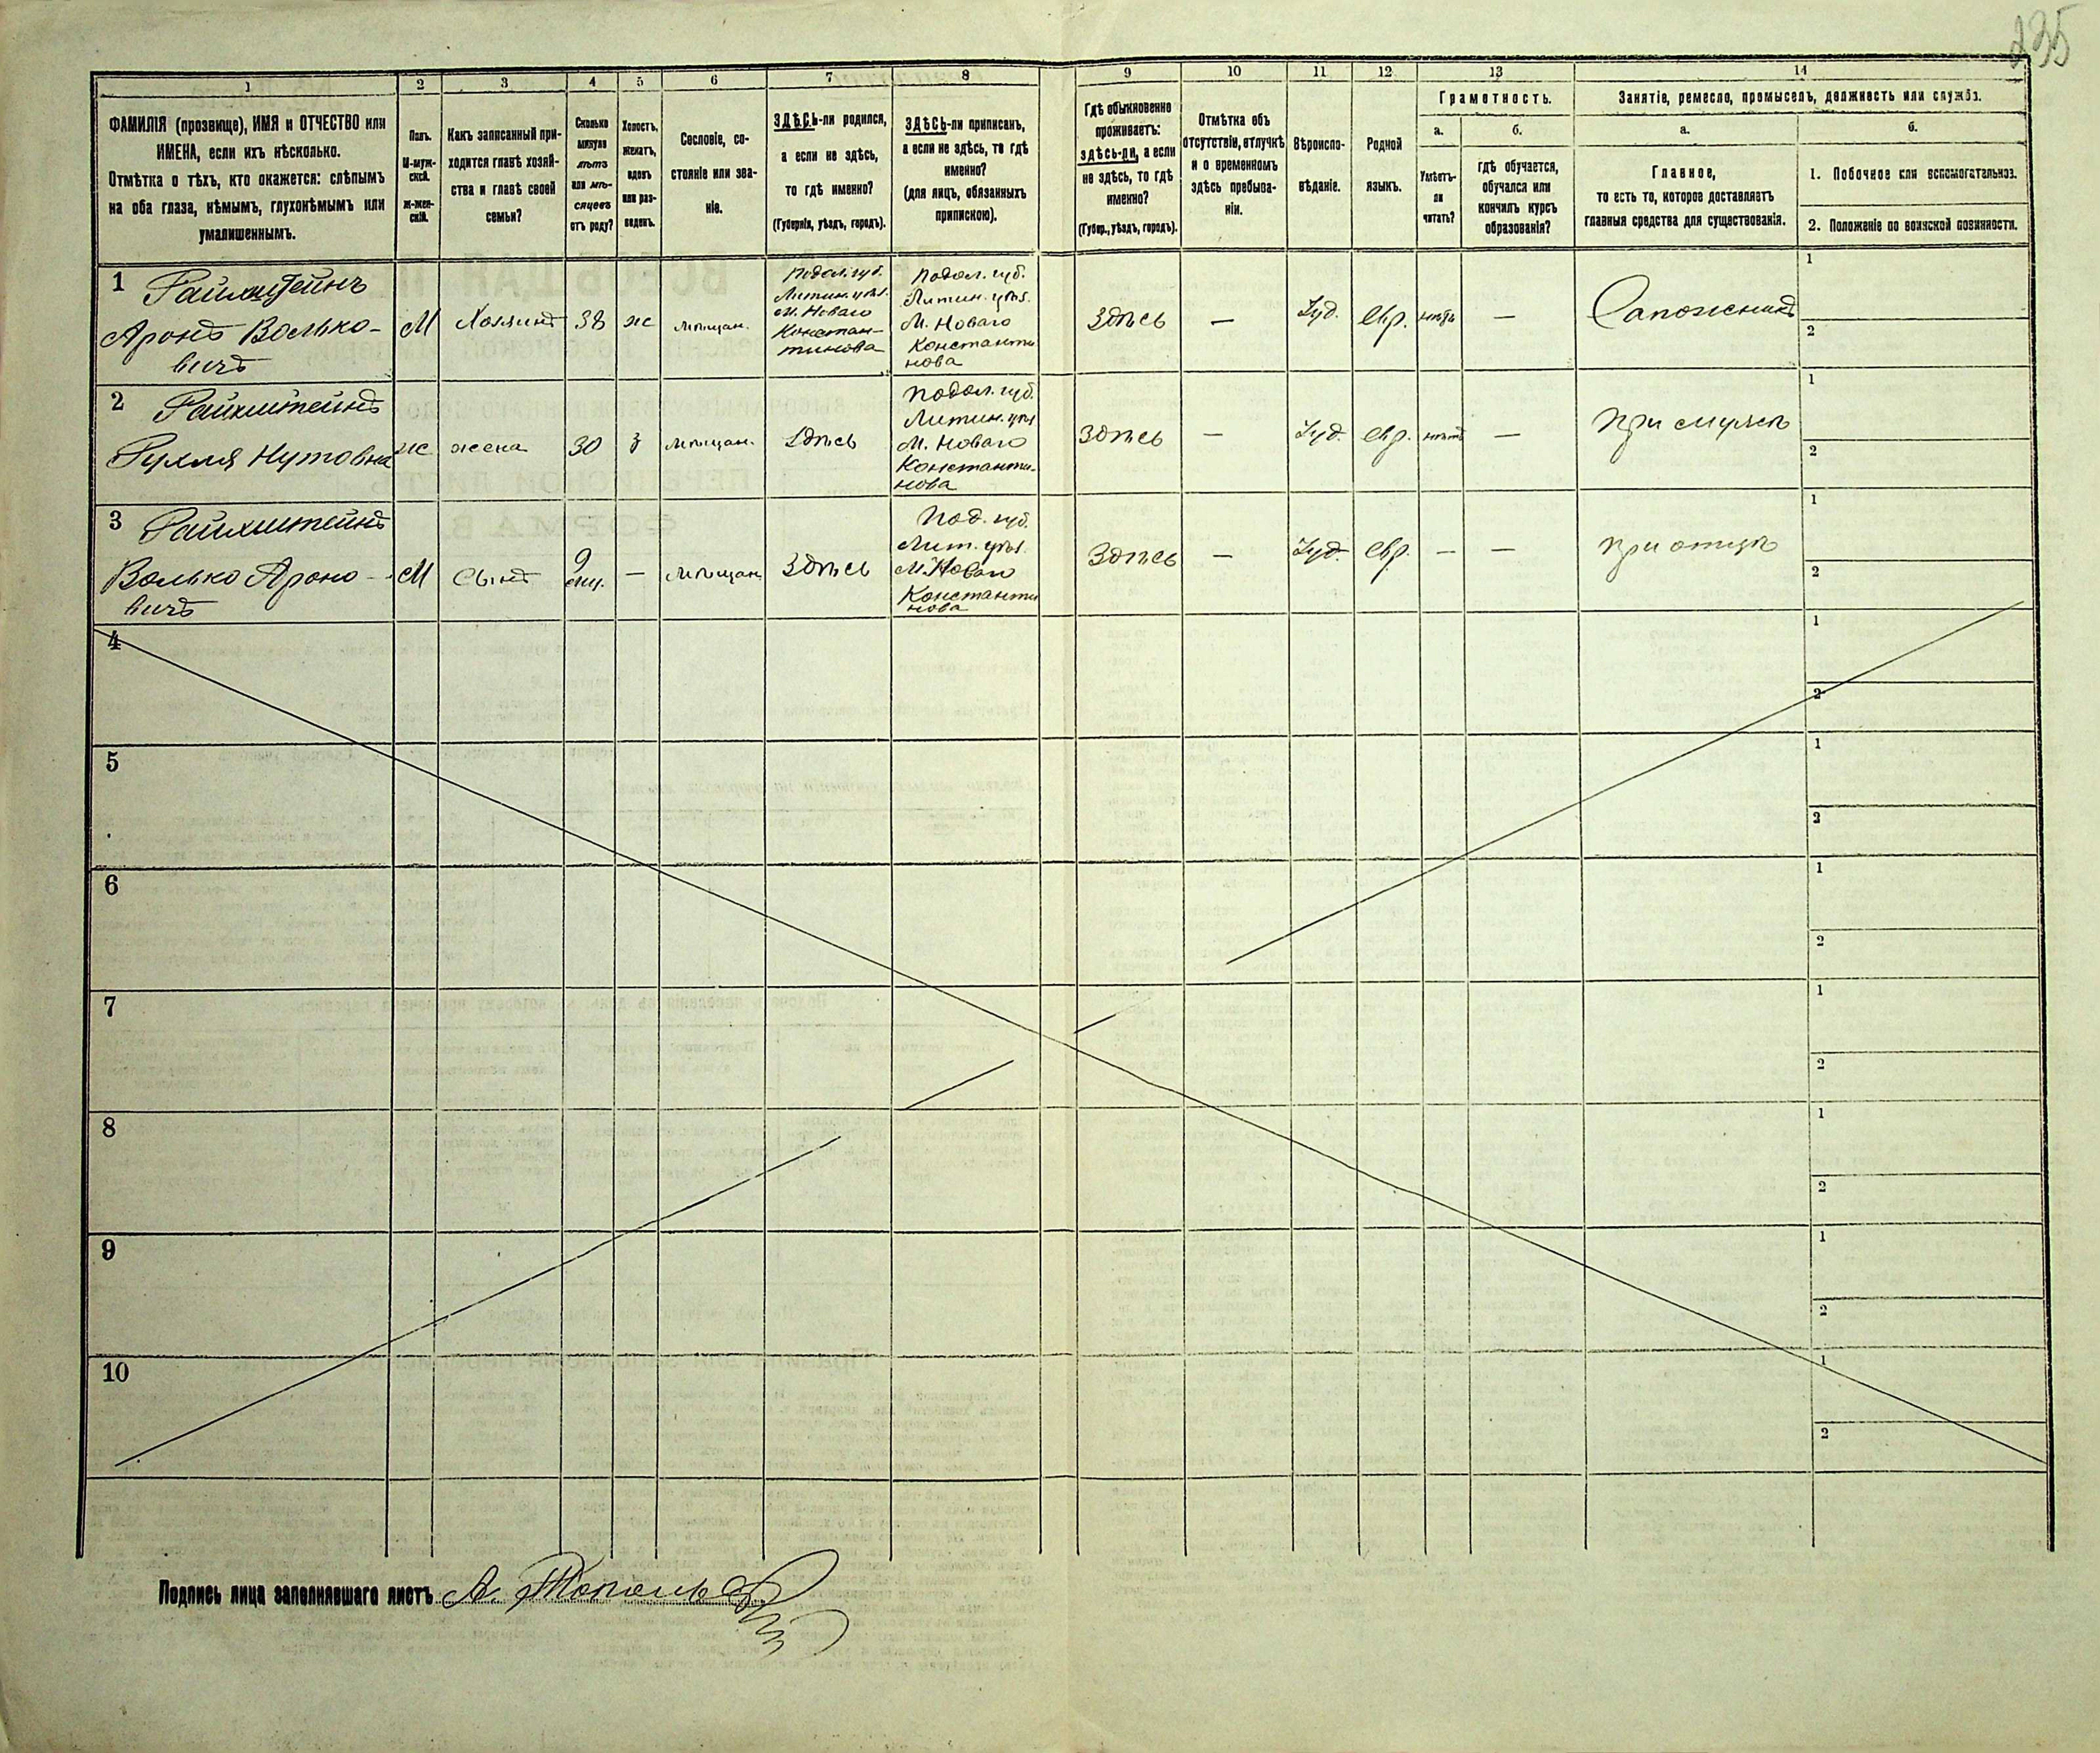 235
1 2 3 4 5 6 7 8 9 10 11 12 13 14
ФАМИЛІЯ (прозвище), ИМЯ и ОТЧЕСТВО или
ИМЕНА, если ихъ нѣсколько.
Отмѣтка о тѣхъ, кто окажется: слѣпымъ
на оба глаза, нѣмымъ, глухонѣмымъ или
умалишеннымъ.
Полъ.
М-муж-
ской.
Ж-жен-
скій.
Какъ записанный при-
ходится главѣ хозяй-
ства и главѣ своей
семьи?
Сколько
минуло
лѣтъ
или мѣ-
сяцевъ
отъ роду?
Холостъ,
женатъ,
вдовъ
или раз-
веденъ.
Сословіе, со-
стояніе или зва-
ніе.
ЗДѢСЬ-ли родился,
а если не здѣсь,
то гдѣ именно?
(Губернія, уѣздъ, городъ).
ЗДѢСЬ-ли приписанъ,
а если не здѣсь, то гдѣ
именно?
(для лицъ, обязанныхъ
припискою).
Гдѣ обыкновенно
проживаетъ:
здѣсь-ли, а если
не здѣсь, то гдѣ
именно?
(Губер., уѣздъ, городъ).
Отмѣтка объ
отсутствіи, отлучкѣ
и о временномъ
здѣсь пребыва-
ніи.
Вѣроиспо-
вѣданіе.
Родной
языкъ.
Грамотность.
а.
Умѣетъ-
ли
читать?
б.
гдѣ обучается,
обучался или
кончилъ курсъ
образованія?
Занятіе, ремесло, промыселъ, должность или служба.
а.
Главное,
то есть то, которое доставляетъ
главныя средства для существованія.
б.
1. Побочное или вспомогательное.
2. Положеніе по воинской повинности.
1 Райхштейнъ
Аронъ Волько-
вичъ
М
Хозяинъ
38
ж
мѣщан.
Подол. губ.
Литин. уѣз.
М. Новаго
Констан-
тинова
Подол. губ.
Литин. уѣз.
М. Новаго
Константи
нова
Здѣсь
—
Іуд.
Евр.
нѣтъ
—
Сапожникъ
1
2
2 Райхштейнъ
Рухля Нутовна
ж
жена
30
з
мѣщан.
Здѣсь
Подол. губ.
Литин. уѣз
М. Новаго
Константи-
нова
Здѣсь
—
Іуд.
евр.
нѣтъ
—
при мужѣ
1
2
3 Райхштейнъ
Волько Ароно-
вичъ
М
Сынъ
9
мѣц.
—
мѣщан.
Здѣсь
Под. губ.
Лит. уѣз.
М. Новаго
Константи
нова
Здѣсь
—
Іуд.
евр.
—
—
при отцѣ
1
2
4
1
2
5
1
2
6
1
2
7
1
2
8
1
2
9
1
2
10
1
2
Подпись лица заполнявшаго листъ А.